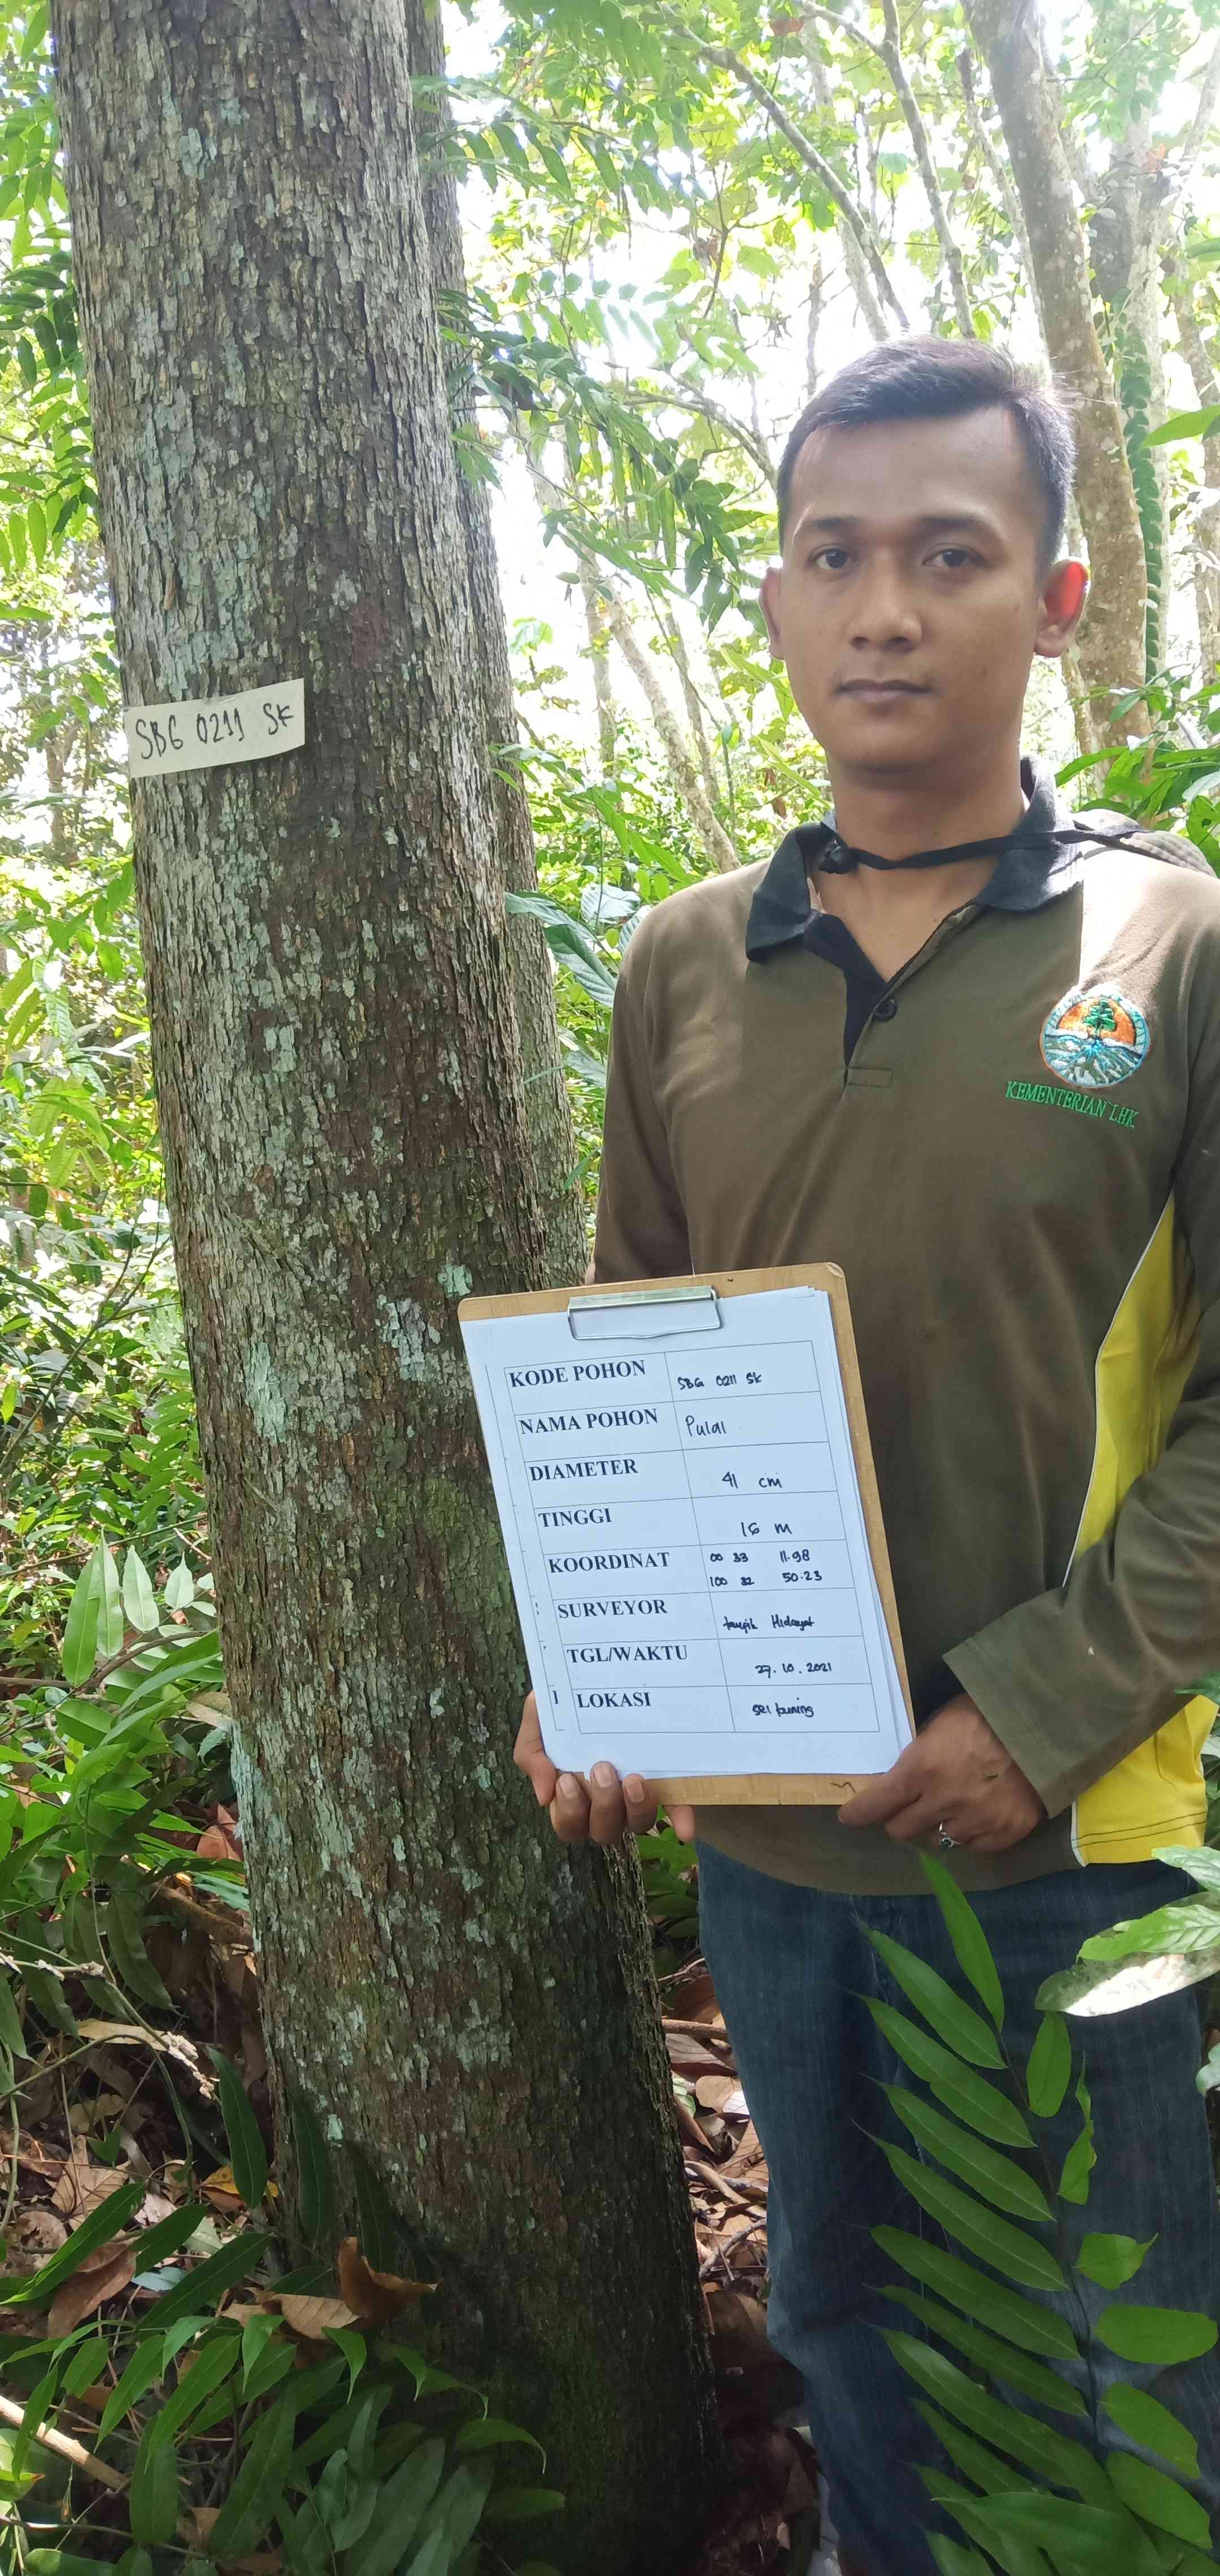 SBG 0211 SK
KEMENTERIAN LHK
KODE POHON SBG 0211 SK
NAMA POHON Pulai
DIAMETER 41 cm
TINGGI 16 m
KOORDINAT 00 33 11.98
100 32 50.23
SURVEYOR taupik Hidayat
TGL/WAKTU 27.10.2021
LOKASI sei kuning